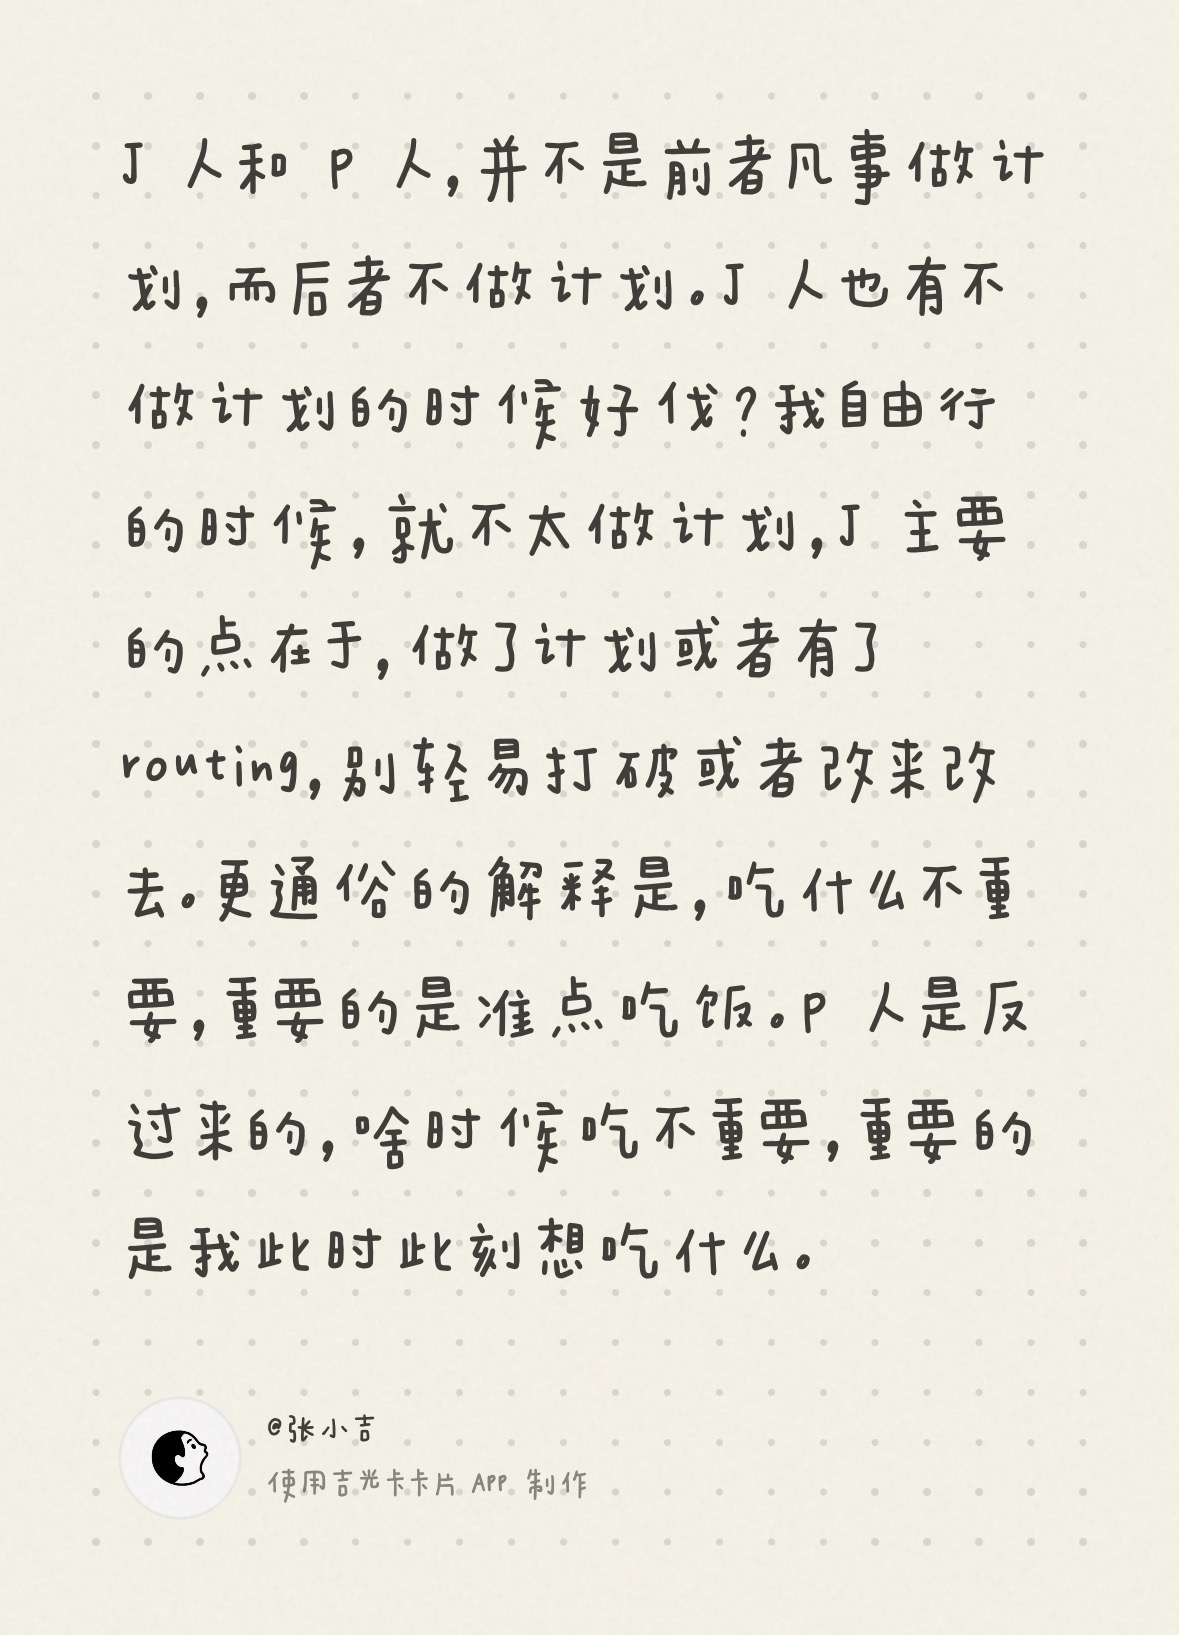 J 人和 P 人,并不是前者凡事做计
划,而后者不做计划。J 人也有不
做计划的时候好伐?我自由行
的时候,就不太做计划,J 主要
的点在于,做了计划或者有了
routing,别轻易打破或者改来改
去。更通俗的解释是,吃什么不重
要,重要的是准点吃饭。P 人是反
过来的,啥时候吃不重要,重要的
是我此时此刻想吃什么。
@张小吉
使用吉光卡卡片 APP 制作